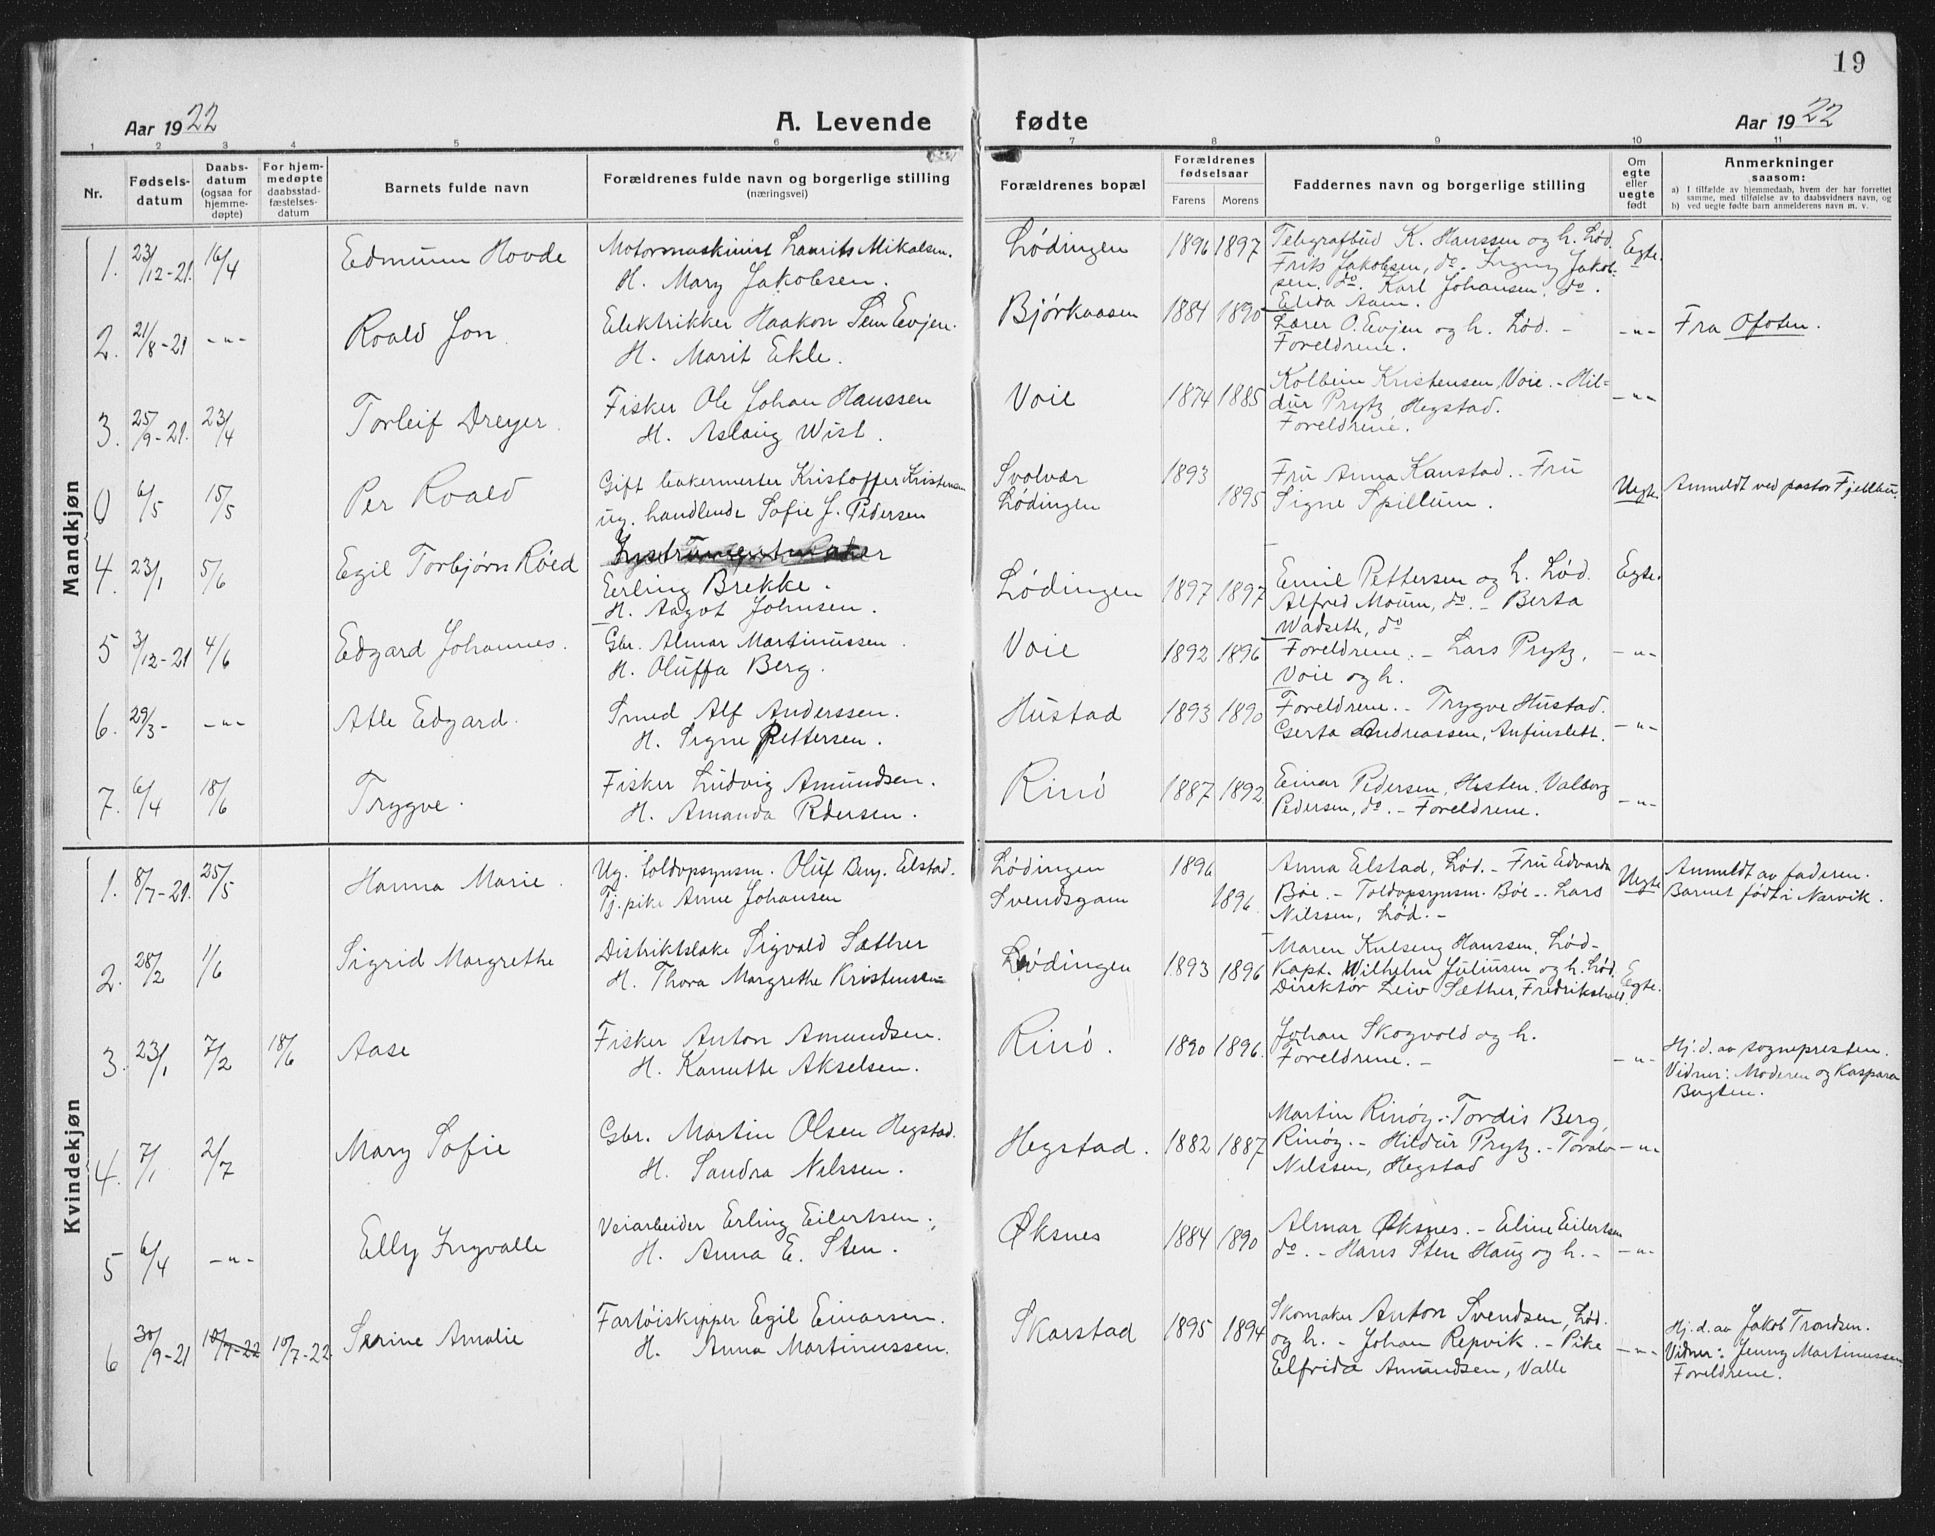 19
Aar 1922 A. Levende fødte Aar 1922
1 2 3 4 5 6 7 8 9 10 11
Nr. Fødsels-datum Daabs-datum (ogsaa for hjemme-døpte) For hjem-medøpte daabsstad-fæstelses-datum Barnets fulde navn Forældrenes fulde navn og borgerlige stilling (næringsvei) Forældrenes bopæl Forældrenes fødselsaar Farens Morens Faddernes navn og borgerlige stilling Om egte eller uegte født Anmerkninger saasom:
a) I tilfælde av hjemmedaab, hvem der har forrettet samme, med tilføielse av to daabsvidners navn, og
b) ved uegte fødte barn anmelderens navn m. v.
Mandkjøn
1. 23/12-21. 16/4 Edmunn Hovde Motormaskinist Laurits Mikalsen. Lødingen 1896 1897 Telegrafbud K. Hanssen og h. Lød. Egte.
H. Mary Jakobsen. Frits Jakobsen, do. Ingny Jakob-
sen, do. Karl Johansen, do.
Elida Aam.
2. 21/8-21 -"- Roald Jon Elektrikker Haakon Sem Evjen. Bjørkaasen 1884 1890 Lærer O. Evjen og h. Lød. - -"- Fra Ofoten.
H. Marit Ekle. Foreldrene.
3. 25/9-21. 23/4 Torleif Dreyer. Fisker Ole Johan Hanssen Voie 1874 1885 Kolbein Kristensen, Voie. - Hil- -"-
H. Aslaug Wist. dur Prytz, Hegstad.
Foreldrene.
0 6/5 15/5 Per Roald Gift bakermester Kristoffer Kristensen Svolvær 1893 Fru Anna Kanstad. - Fru
ug. handlende Sofie J. Pedersen Lødingen 1895 Signe Spillum. Uegte. Anmeldt ved pastor Fjellbu.
4. 23/1 5/6 Egil Torbjørn Røed Instrumentmaker
Erling Brekke. Lødingen 1897 1897 Emil Pettersen og h. Lød. Egte.
H. Aagot Johnsen. Alfred Mourn, do. - Berta
Wadseth, do
5 3/12-21 4/6 Edgard Johannes. Gbr. Almar Martinussen. Voie 1892 1896 Foreldrene. - Lars Prytz, -"-
H. Oluffa Berg. Voie og h.
6. 29/3- -"- Atle Edgard. Smed Alf Anderssen. Hustad 1893 1890 Foreldrene. - Trygve Hustad.
H. Signe Pettersen. Gerta Andreassen, Anfinslett. -"-
7. 6/4 18/6 Trygve. Fisker Ludvig Amundsen. Rinø 1887 1892. Einar Pedersen, Hesten. Valborg
H. Amanda Pedersen. Pedersen, do. - Foreldrene. -"-
Kvindekjøn
1. 8/7-21. 25/5 Hanna Marie. Ug. toldopsynsm. Oluf Benj. Elstad. Lødingen 1896 Anna Elstad, Lød. - Fru Edvarda Uegte Anmeldt av faderen.
Tj. pike Anne Johansen Svendsgam 1896. Bøe. - Toldopsynsm. Bøe -. Lars Barnet født i Narvik.
Nilssen, Lød. -
2. 28/2 1/6 Sigrid Margrethe Distriktslæke Sigvald Sæther Lødingen 1893 1896 Maren Kulseng Hanssen, Lød-
H. Thora Margrethe Kristensen Kapt. Wilhelm Juliusen og h. Lød. Egte.
Direktør Leiv Sæther, Fredrikshald.
3. 23/1 7/2 18/6 Aase Fisker Anton Amundsen. Rinø. 1890 1896. Johan Skogvold og h.
H. Kanutte Akselsen. Foreldrene. - -"- Hj. d. av sognepresten.
Vidner: Moderen og Kaspara
Bergten.
4. 7/1 2/7 Mary Sofie Gbr. Martin Olsen Hegstad. Hegstad. 1882 1887 Martin Rinøy. - Tordis Berg,
H. Sandra Nilssen. Rinøy. - Hildur Prytz. - Toralv -"-
Nilssen, Hegstad
5 6/4 -"- Elly Ingvalle Veiarbeider Erling Eilertsen. Øksnes 1884 1890 Almar Øksnes. - Eline Eilertsen
H. Anna E. Sten. do. - Hans Sten Haug og h. - -"-
6 30/9-21 10/7-22 10/7-22 Serine Amalie Fartøiskipper Egil Einarsen. Skarstad 1895 1894 Skomaker Anton Svendsen, Lød. Hj. d. av Jakob Trondsen.
H. Anna Martinussen. og h. - Johan Repvik. - Pike -"- Vidner: Jenny Martinussen
Elfrida Amundsen, Valle Foreldrene.